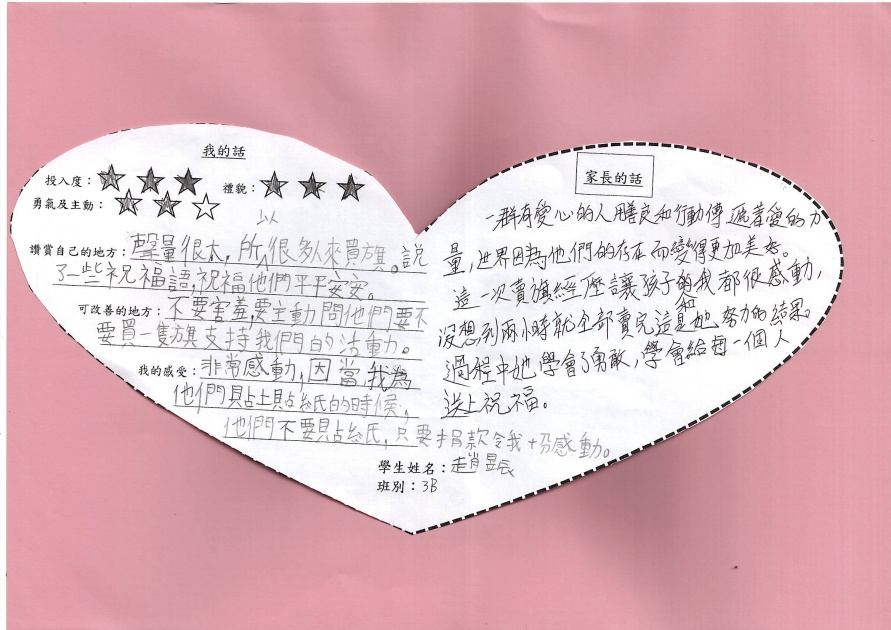 我的話
投入度：★★★ 禮貌：★★★
勇氣及主動：★★☆
讚賞自己的地方：聲量很大，所以很多人來買旗。說
了一些祝福語，祝福他們平平安安。
可改善的地方：不要害羞要主動問他們要不
要買一隻旗支持我們的活動。
我的感受：非常感動，因當，我為
他們貼上貼紙的時候，
他們不要貼紙，只要捐款令我十份感動。
家長的話
一群有愛心的人用善良和行動傳遞著愛的力
量，世界因為他們的存在而變得更加美好。
這一次賣旗經歷讓孩子和我都很感動，
沒想到兩小時就全部賣完這是她努力的結果。
過程中她學會了勇敢，學會給每一個人
送上祝福。
學生姓名：趙肖昱辰
班別：3B